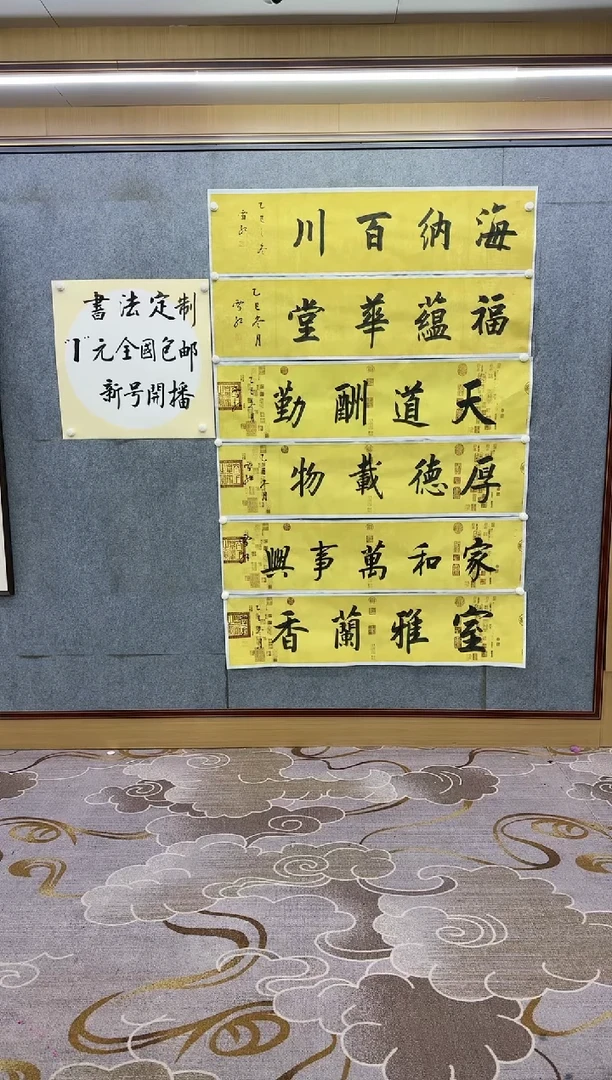 書法定制
"1"元全國包邮
新号開播
海納百川
乙巳冬
福蘊華堂
乙巳冬月
天道酬勤
厚德載物
家和萬事興
室雅蘭香